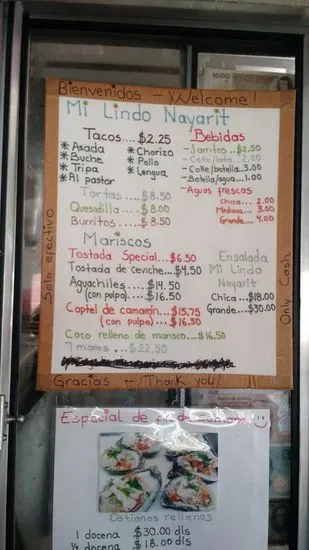 Bienvenidos - Welcome!
Mi Lindo Nayarit
Tacos....$2.25
* Asada
* Buche
* Tripa
* Al pastor
* Chorizo
* Pollo
* Lengua
Tortas....$8.50
Quesadilla....$8.00
Burritos....$8.50
Bebidas
- Jarritos...$2.50
- Coke/lata..2.00
- Coke/botella..3.00
- Botella/agua..1.00
- Aguas frescas
Chica...2.00
Mediana...3.00
Grande....4.00
Mariscos
Tostada Special...$6.50
Tostada de ceviche...$4.50
Aguachiles....$14.50
(con pulpo)....$16.50
Coptel de camarón...$15.75
(con pulpo)...$16.50
Coco relleno de marisco...$16.50
7 mares...$22.50
Ensalada
Mi Lindo
Nayarit
Chica...$18.00
Grande...$30.00
Solo efectivo
Only Cash
Gracias - Thank you!
Especial de fin de semana
Ostiones rellenos
1 docena $30.00 dls
½ docena $18.00 dls
1000